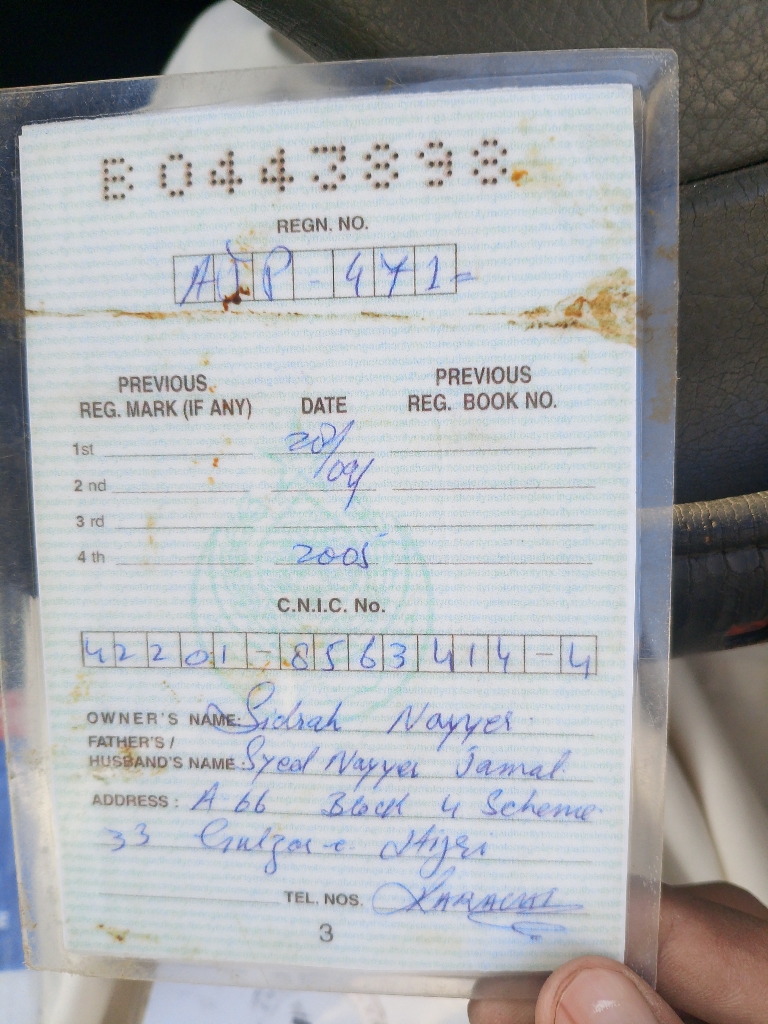 B0443898
REGN. NO.
-471=
PREVIOUS PREVIOUS
REG. MARK (IF ANY) DATE REG. BOOK NO.
1st 28/
2 nd 09/
3 rd
4 th 2005
C.N.I.C. No.
42201-8563414-4
OWNER'S NAME: Sidrah Nayyer
FATHER'S /
HUSBAND'S NAME: Syed Nayyer Jamal
ADDRESS: A-66 Block 4 Scheme
33 Gulzar-e Hijri
TEL. NOS. KARACHI
3